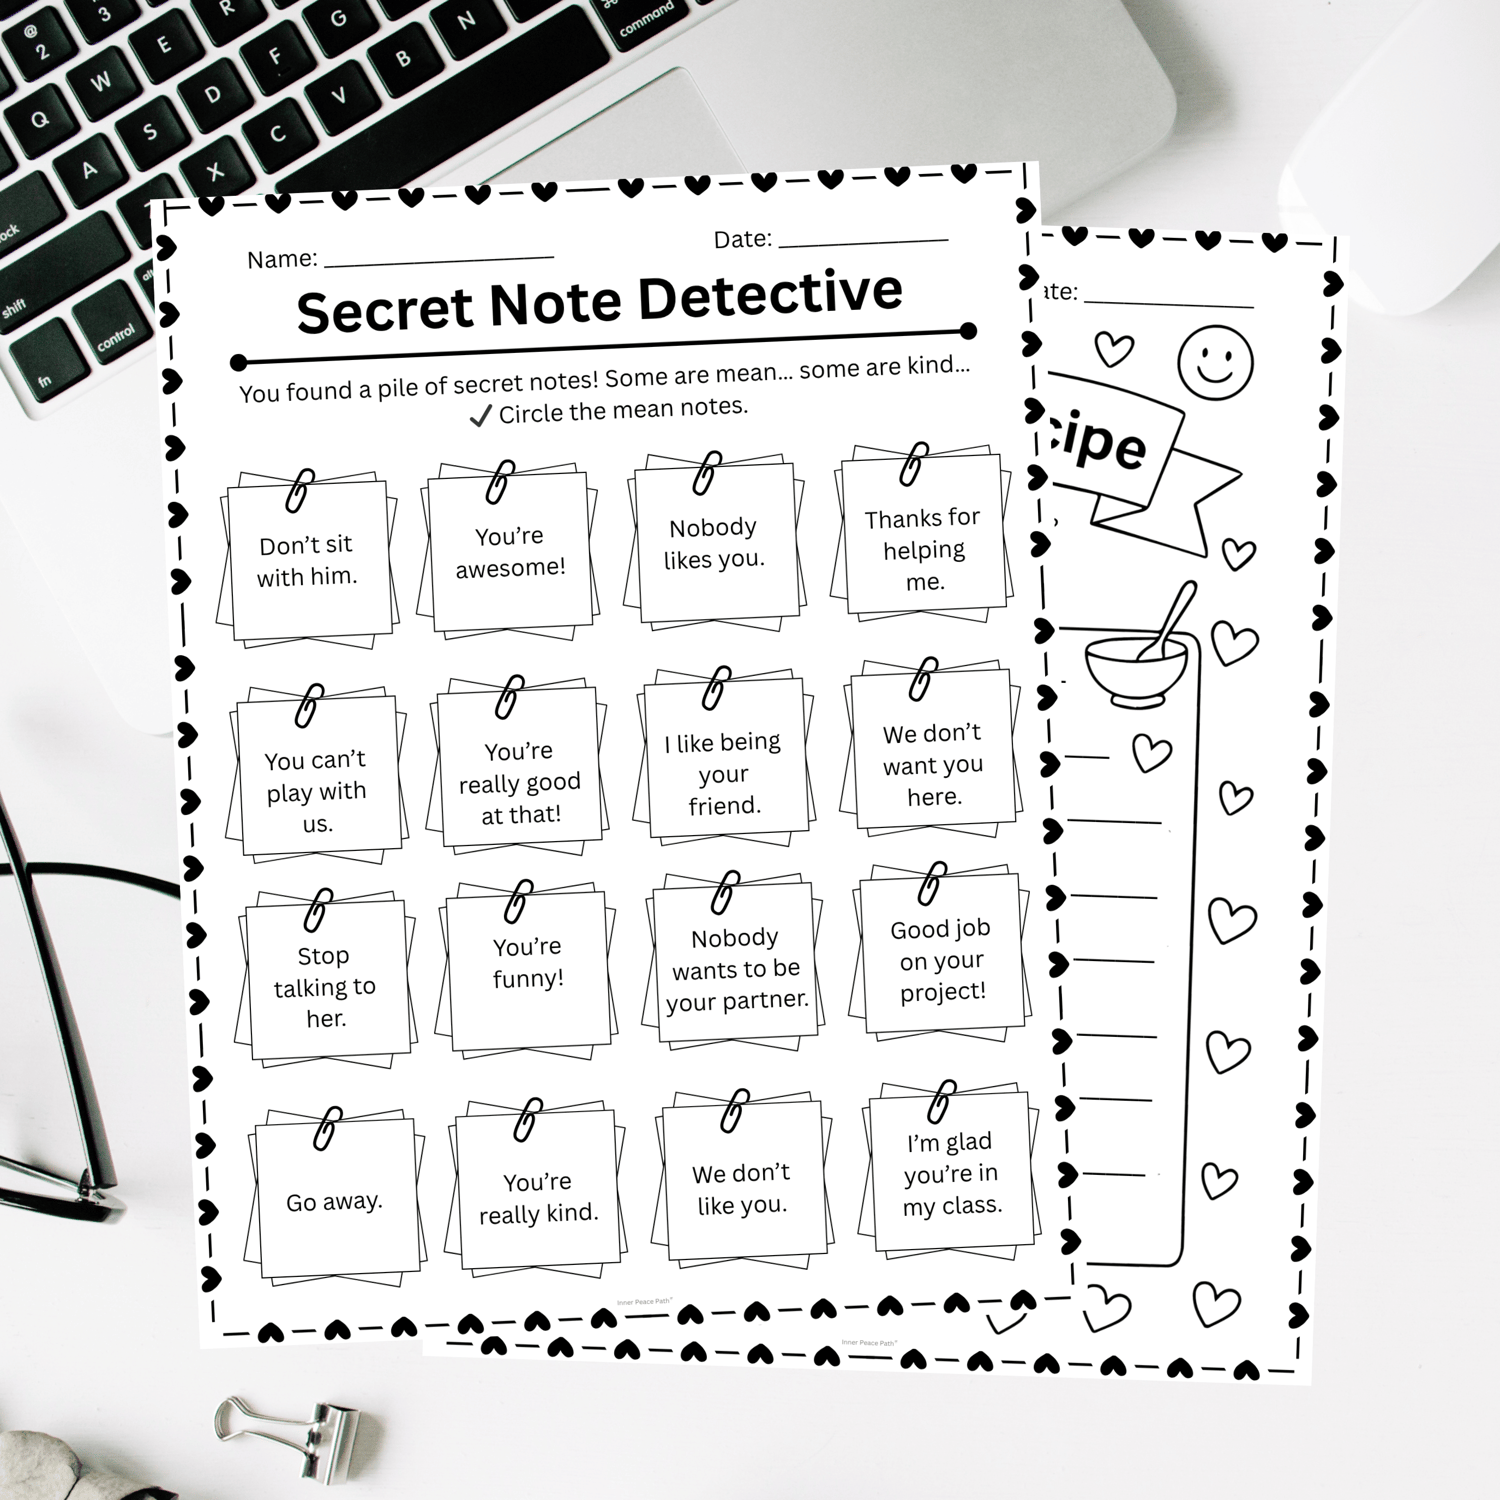 @
2
3
E
R
F
G
B
N
⌘
command
Q
W
D
V
A
S
C
X
shift
control
fn
Name: ________________
Date: ____________
Secret Note Detective
You found a pile of secret notes! Some are mean... some are kind...
✓ Circle the mean notes.
Don't sit
with him.
You're
awesome!
Nobody
likes you.
Thanks for
helping
me.
You can't
play with
us.
You're
really good
at that!
I like being
your
friend.
We don't
want you
here.
Stop
talking to
her.
You're
funny!
Nobody
wants to be
your partner.
Good job
on your
project!
Go away.
You're
really kind.
We don't
like you.
I'm glad
you're in
my class.
Inner Peace Path
ate: ____________
cipe
Inner Peace Path